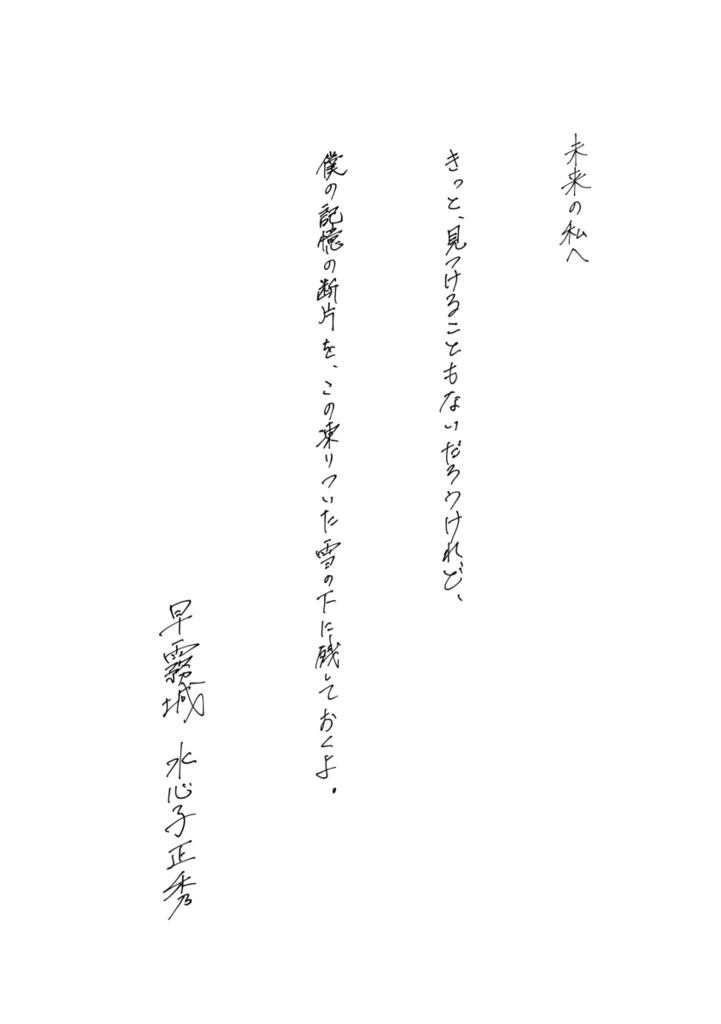 未来の私へ
きっと、見つけることもないだろうけれど、
僕の記憶の断片を、この凍りついた雪の下に残しておくよ。
早霧城 水心子正秀